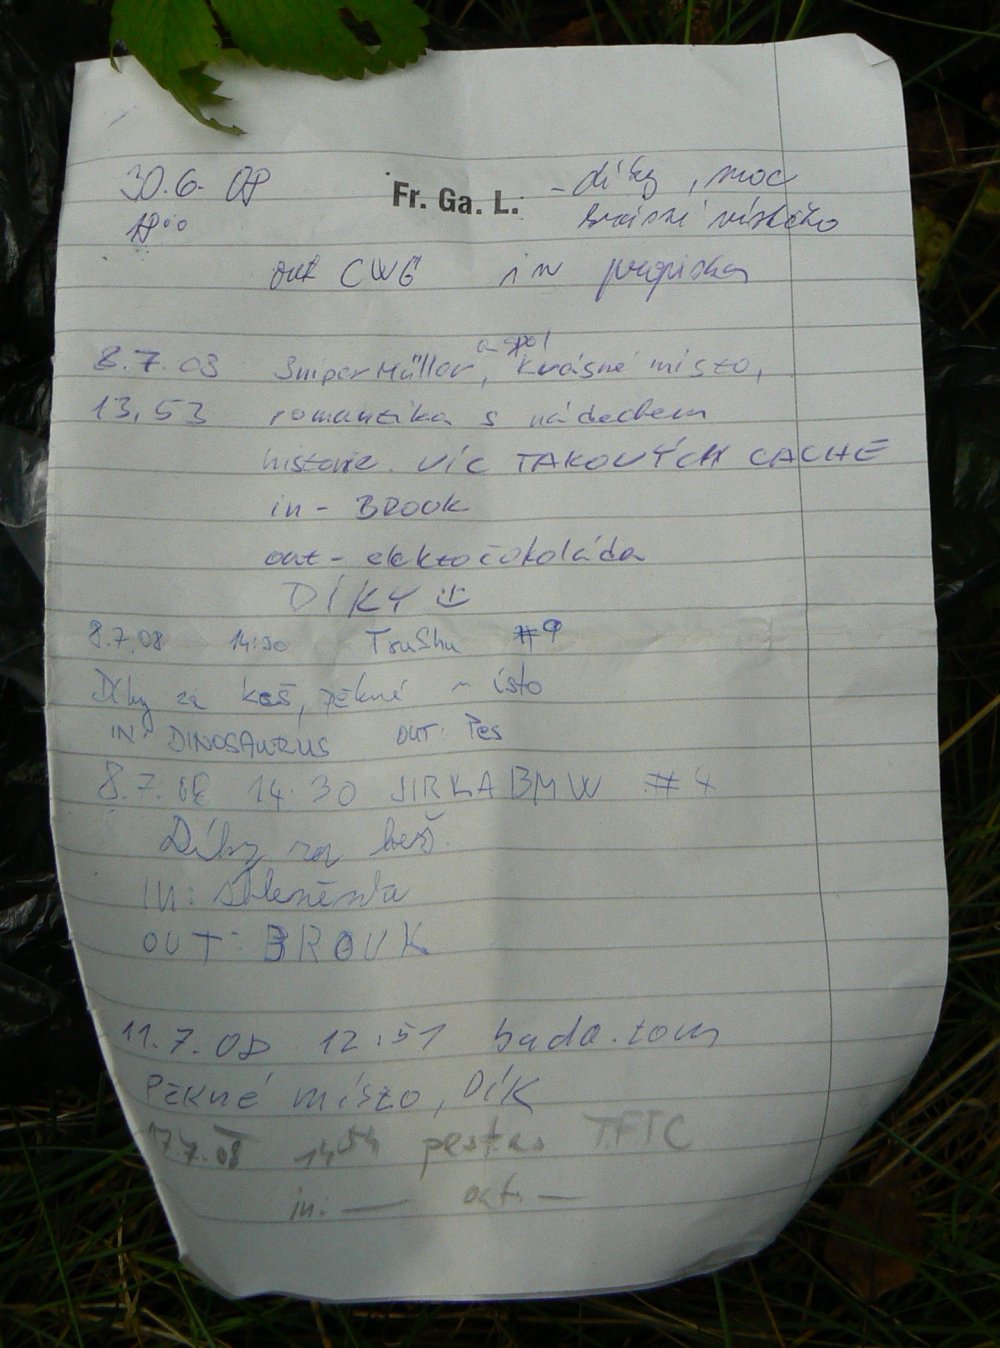 30.6. 08 Fr. Ga. L. - díky, moc
18⁰⁰ krásné místečko
out CWG in propiska
8.7.08 SniperMüller, a spol krásné místo,
13,53 romantika s nádechem
historie. VÍC TAKOVÝCH CACHE
in - BROOK
out - elektročokoláda
DÍKY :)
8.7.08 14:30 TruShu #9
Díky za keš, pěkné místo
IN: DINOSAURUS OUT: Pes
8.7.08 14:30 JIRKABMW #4
Díky za keš.
IN: skleněnka
OUT: BROUK
11.7.08 12:51 buda.tom
Pěkné místo, Dík
17.7.08 14⁵⁴ pestas TFTC
in. — out. —